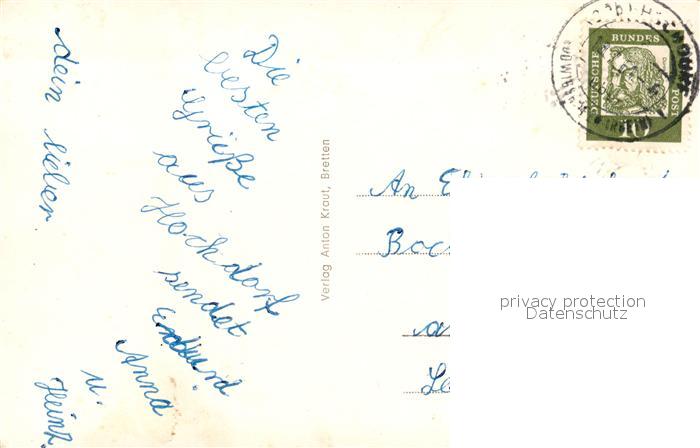 Die
besten
Grüße
aus
Hochdorf
sendet
Eduard
Anna
u.
Heinz.
dein lieber
Verlag Anton Kraut, Bretten
DEUTSCHE BUNDESPOST
10
An
a
privacy protection
Datenschutz